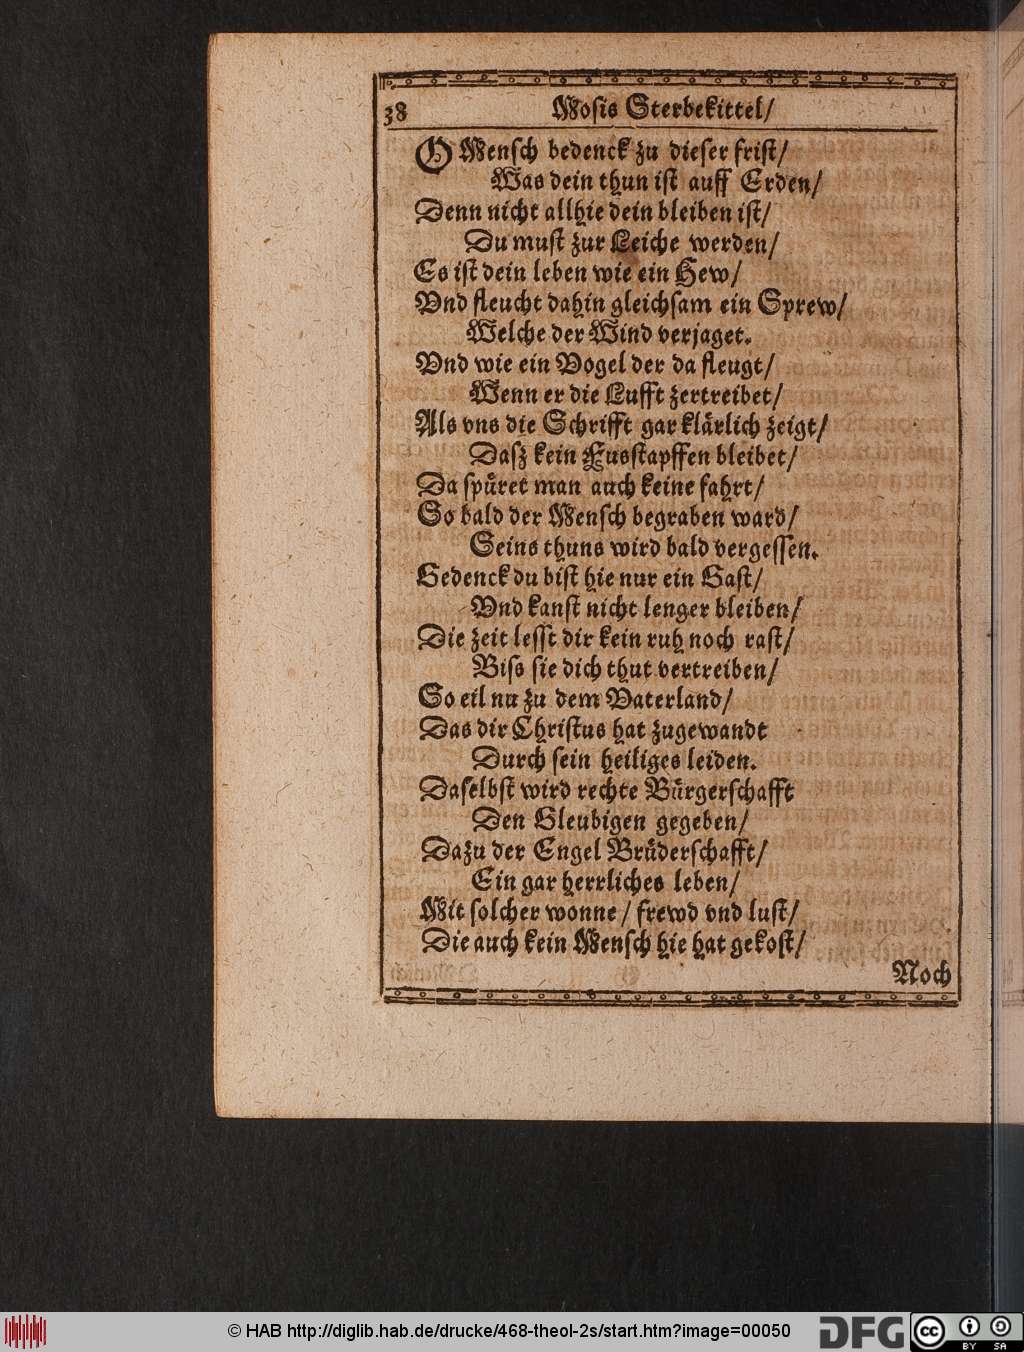 38 Mosis Sterbekittel/
O Mensch bedenck zu dieser frist/
Was dein thun ist auff Erden/
Denn nicht allhie dein bleiben ist/
Du must zur Leiche werden/
Es ist dein leben wie ein Hew/
Vnd fleucht dahin gleichsam ein Sprew/
Welche der Wind verjaget.
Vnd wie ein Vogel der da fleugt/
Wenn er die Lufft zertreibet/
Als vns die Schrifft gar klärlich zeigt/
Dasz kein Fusstapffen bleibet/
Da spüret man auch keine fahrt/
So bald der Mensch begraben ward/
Seins thuns wird bald vergessen.
Gedenck du bist hie nur ein Gast/
Vnd kanst nicht lenger bleiben/
Die zeit lesst dir kein ruh noch rast/
Biss sie dich thut vertreiben/
So eil nu zu dem Vaterland/
Das dir Christus hat zugewandt
Durch sein heiliges leiden.
Daselbst wird rechte Bürgerschafft
Den Gleubigen gegeben/
Dazu der Engel Brüderschafft/
Ein gar herrliches leben/
Mit solcher wonne/ frewd vnd lust/
Die auch kein Mensch hie hat gekost/
Noch
© HAB http://diglib.hab.de/drucke/468-theol-2s/start.htm?image=00050
DFG
cc BY SA